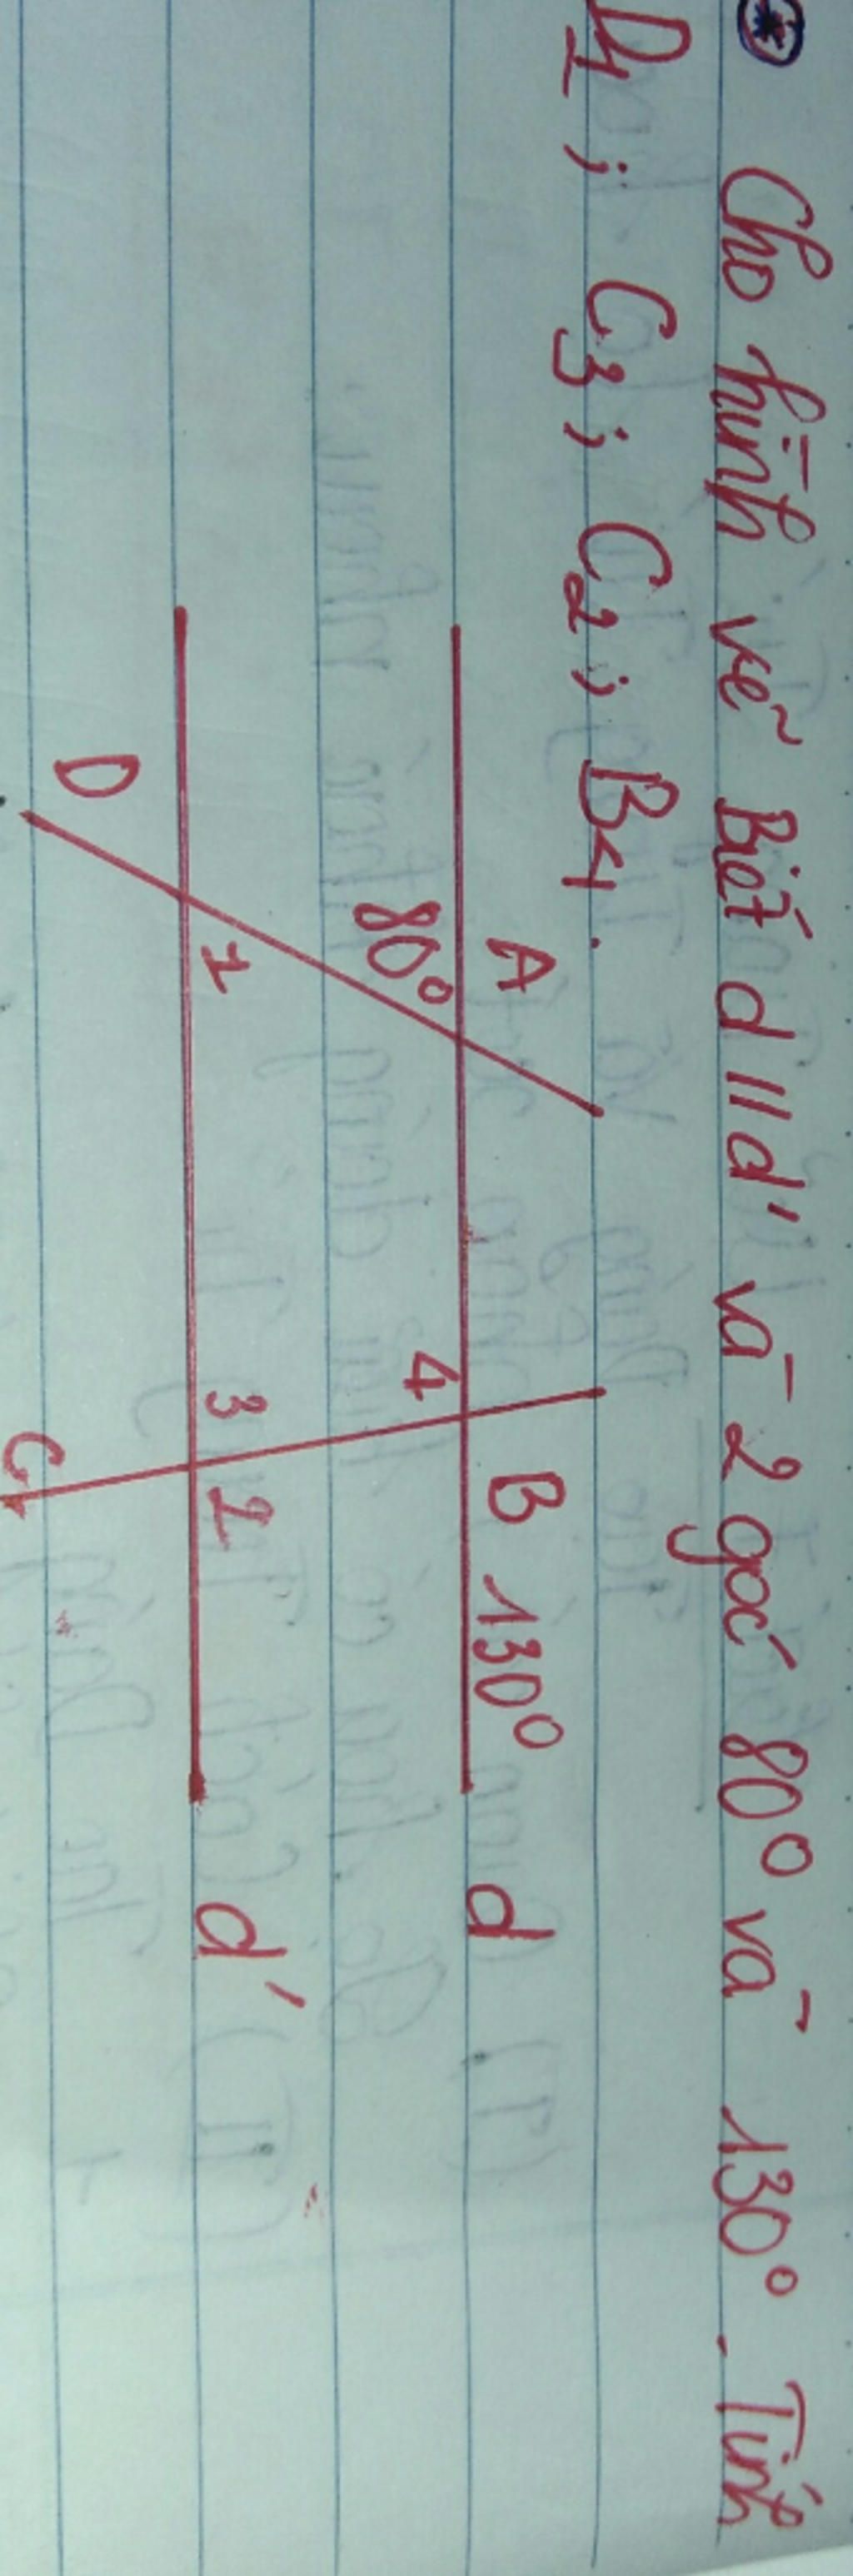 Cho hình vẽ Biết d // d' và 2 góc 80° và 130°. Tính
D1; C3; C2; B4.
A
B 130°
d
80°
4
D
1
3
2
d'
C